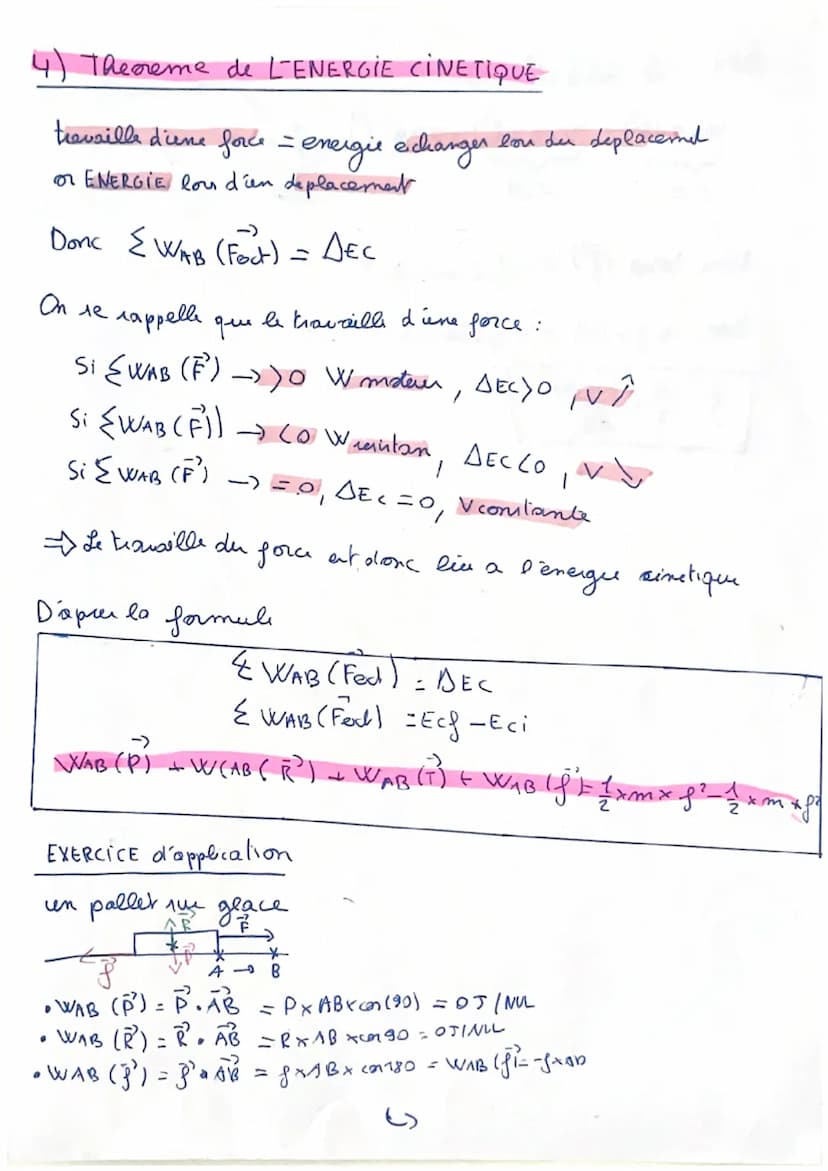 4) Theoreme de L'ENERGIE CINETIQUE
travaille d'une force = energie echanger lors du deplacement
or ENERGIE lors d'un deplacement
Donc Σ WAB (Fext) = ΔEC
On se rappelle que le travaille d'une force :
Si ΣWAB (F) → >0 W moteur, ΔEC>0, V ↗
Si ΣWAB (F)) → <0 W resistan, ΔEC<0, V ↘
Si Σ WAB (F) → =0, ΔEc =0, V constante
⇒ Le travaille du force est donc lieu a l'energie cinetique
D'apres la formule
Σ WAB (Fext) = ΔEC
Σ WAB (Fext) = Ecf - Eci
WAB (P) + W(AB (R) + WAB (T) + WAB (f) = 1/2 × m × f² - 1/2 × m × f²
EXERCICE d'application
un pallet sur glace
R F
f P A → B
• WAB (P) = P . AB = P × AB × cos(90) = 0J / NUL
• WAB (R) = R . AB = R × AB × cos 90 = 0J / NULL
• WAB (f) = f . AB = f × AB × cos 180 = WAB (f) = -f × AB